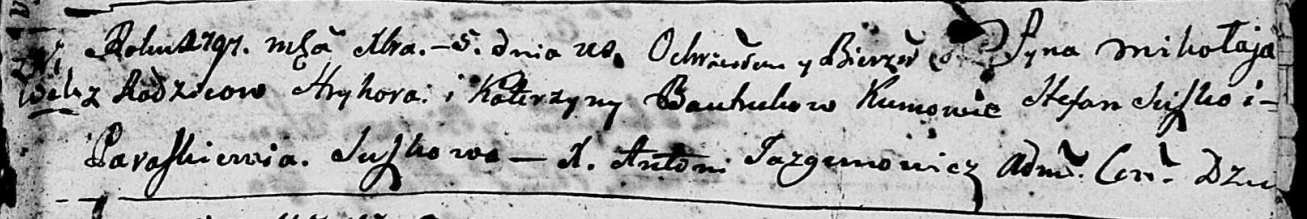 Roku 1797. mca Xbra. – 5. dnia us. Ochrzciłem y Bierzm Syna Mikołaja
z Rodzicow Hryhora i Katerzyny Kumowie Stefan Suszko i –
Paraskiewia. Suszkowa – X. Antoni Jazgunowicz Adm. Cer.